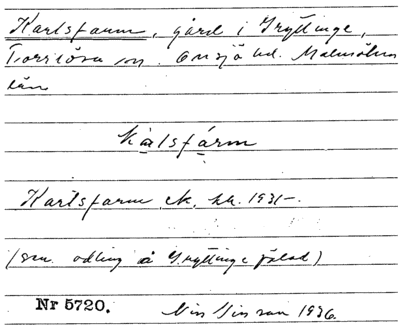 Karlsfarm, gård i Gryttinge,
Torrlösa sn. Onsjö hd. Malmöhus
län
Kálsfárm
Karlsfarm, ek. kk. 1931-.
(sen. odling å Gryttinge fälad)
Nr 5720. Nils Nilsson 1936.